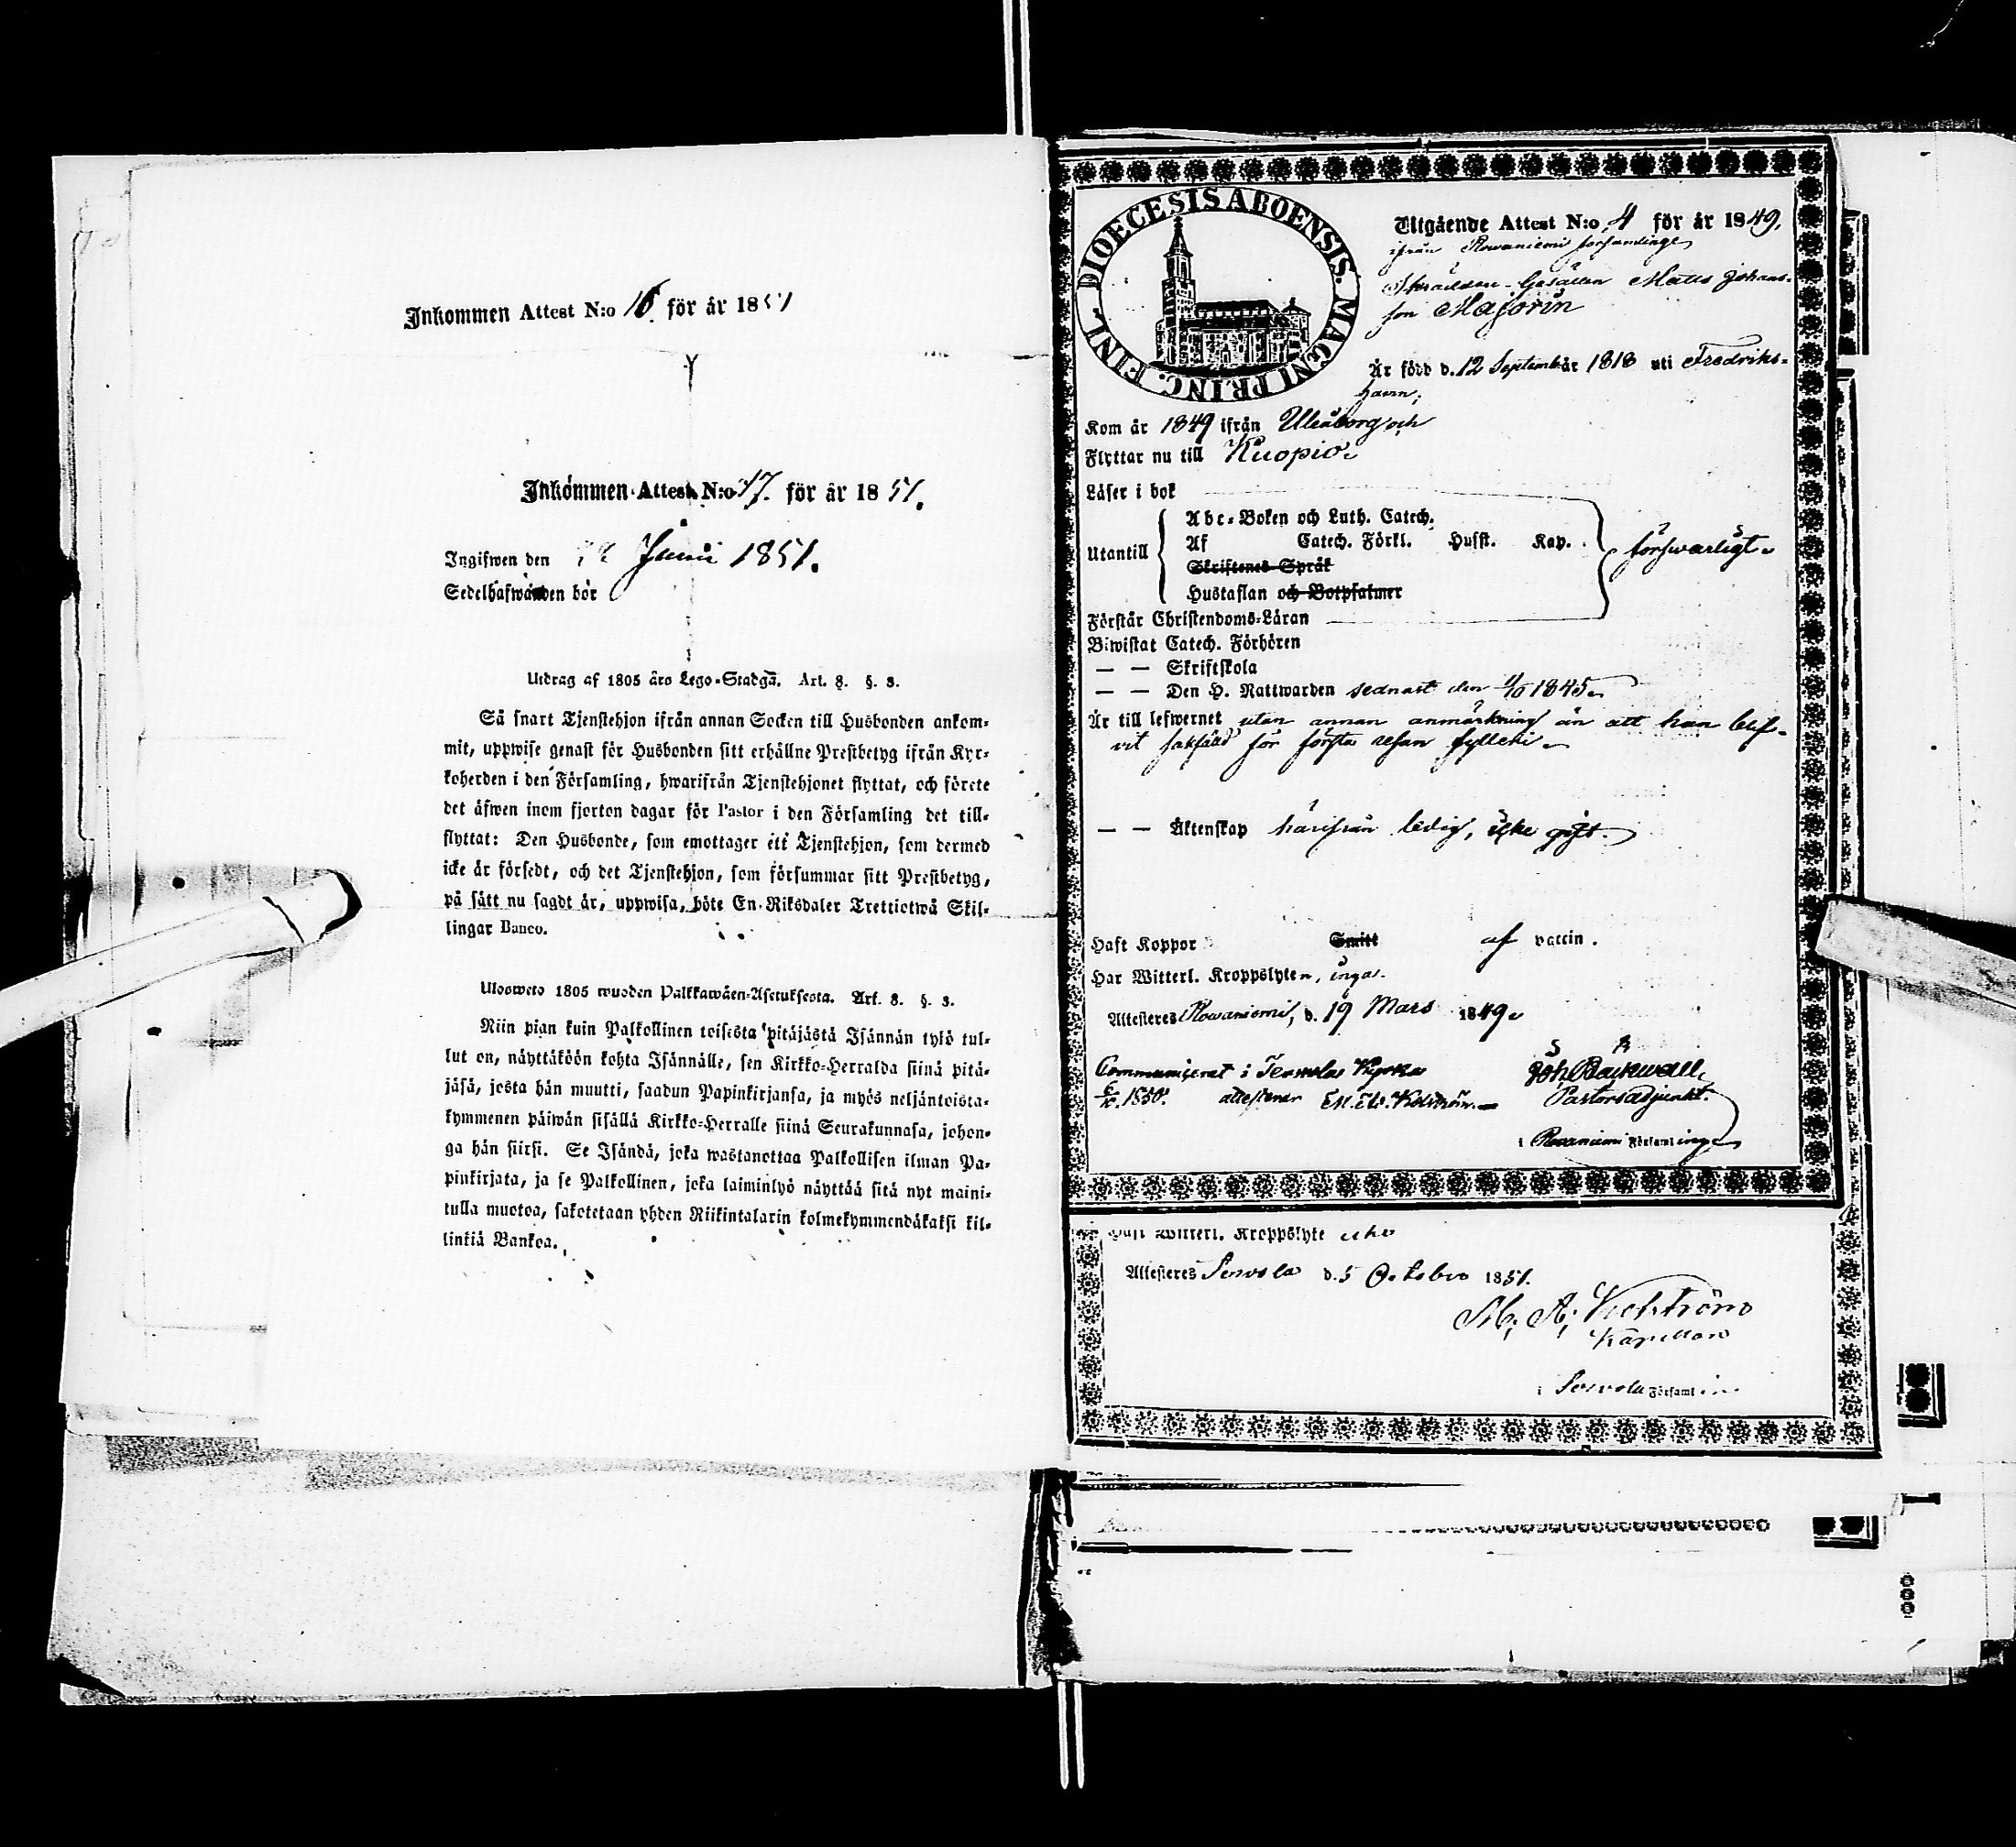 Inkommen Attest N:o 16 för år 1851
Inkommen Attest N:o 17. för år 1851.
Ingifwen den Junii 1851.
Sedelhafwanden bör
Utdrag af 1805 års Lego-Stadga. Art. 8. §. 3.
Så snart Tjenstehjon ifrån annan Socken till Husbonden ankom-
mit, uppwise genast för Husbonden sitt erhållne Prestbetyg ifrån Kyr-
koherden i den Församling, hwarifrån Tjenstehjonet flyttat, och förete
det äfwen inom fjorton dagar för Pastor i den Församling det till-
flyttat: Den Husbonde, som emottager ett Tjenstehjon, som dermed
icke är försedt, och det Tjenstehjon, som försummar sitt Prestbetyg,
på sätt nu sagdt är, uppwisa, böte En Riksdaler Trettiotwå Skil-
lingar Banco.
Ulosweto 1805 wuoden Palkkawäen-Asetuksesta. Art. 8. §. 3.
Niin pian kuin Palkollinen toisesta pitäjästä Isännän tykö tul-
lut on, näyttäköön kohta Isännälle, sen Kirkko-Herralda siinä pitä-
jäsä, josta hän muutti, saadun Papinkirjansa, ja myös neljäntoista-
kymmenen päiwän sisällä Kirkko-Herralle siinä Seurakunnasa, johon-
ga hän siirsi. Se Isändä, joka wastanottaa Palkollisen ilman Pa-
pinkirjata, ja se Palkollinen, joka laiminlyö näyttää sitä nyt maini-
tulla muotoa, sakotetaan yhden Riikintalarin kolmekymmendäkaksi kil-
linkiä Bankoa.
DIOECESIS ABOENSIS. MAGNI PRINC. FINL.
Utgående Attest N:o 4 för år 1849.
ifrån Rowaniemi församlings
Skrädderi-Gesällen Matts Johans-
son Majorin
Är född d. 12 September år 1818 uti Fredriks-
hamn;
Kom år 1849 ifrån Uleåborg och
Flyttar nu till Kuopio.
Läser i bok
Utantill
Abc-Boken och Luth. Catech.
Af Catech. Förkl. Husst. Kap.
Skriftenes Språk
Hustaflan och Botpsalmer
försvarligt.
Förstår Christendoms-Läran
Biwistat Catech. Förhören
— — Skriftskola
— — Den H. Nattwarden sednast den 1845.
Är till lefwernet utan annan anmärkning än att han blif-
vit sakfälld för första resan fylleri.
— — Äktenskap härifrån ledig, icke gift.
Haft Koppor Smitt af vaccin.
Har Witterl. Kroppslyten, inga.
Attesteres Rowaniemi, d. 19 Mars 1849.
Communicerat i Terwola Kyrka
1850. attesterar
Joh. Backwall,
Pastorsadjunkt.
i Rovaniemi Församling
Haft Witterl. Kroppslyte icke
Attesteres Terwola d. 5 Octobr 1851.
M. A. Keckström
Kapellan
i Terwola Församl